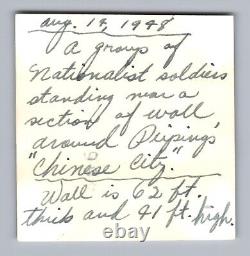 Aug. 14, 1948
A group of
Nationalist soldiers
standing near a
section of wall
around Peiping's
"Chinese City."
Wall is 62 ft.
thick and 41 ft. high.